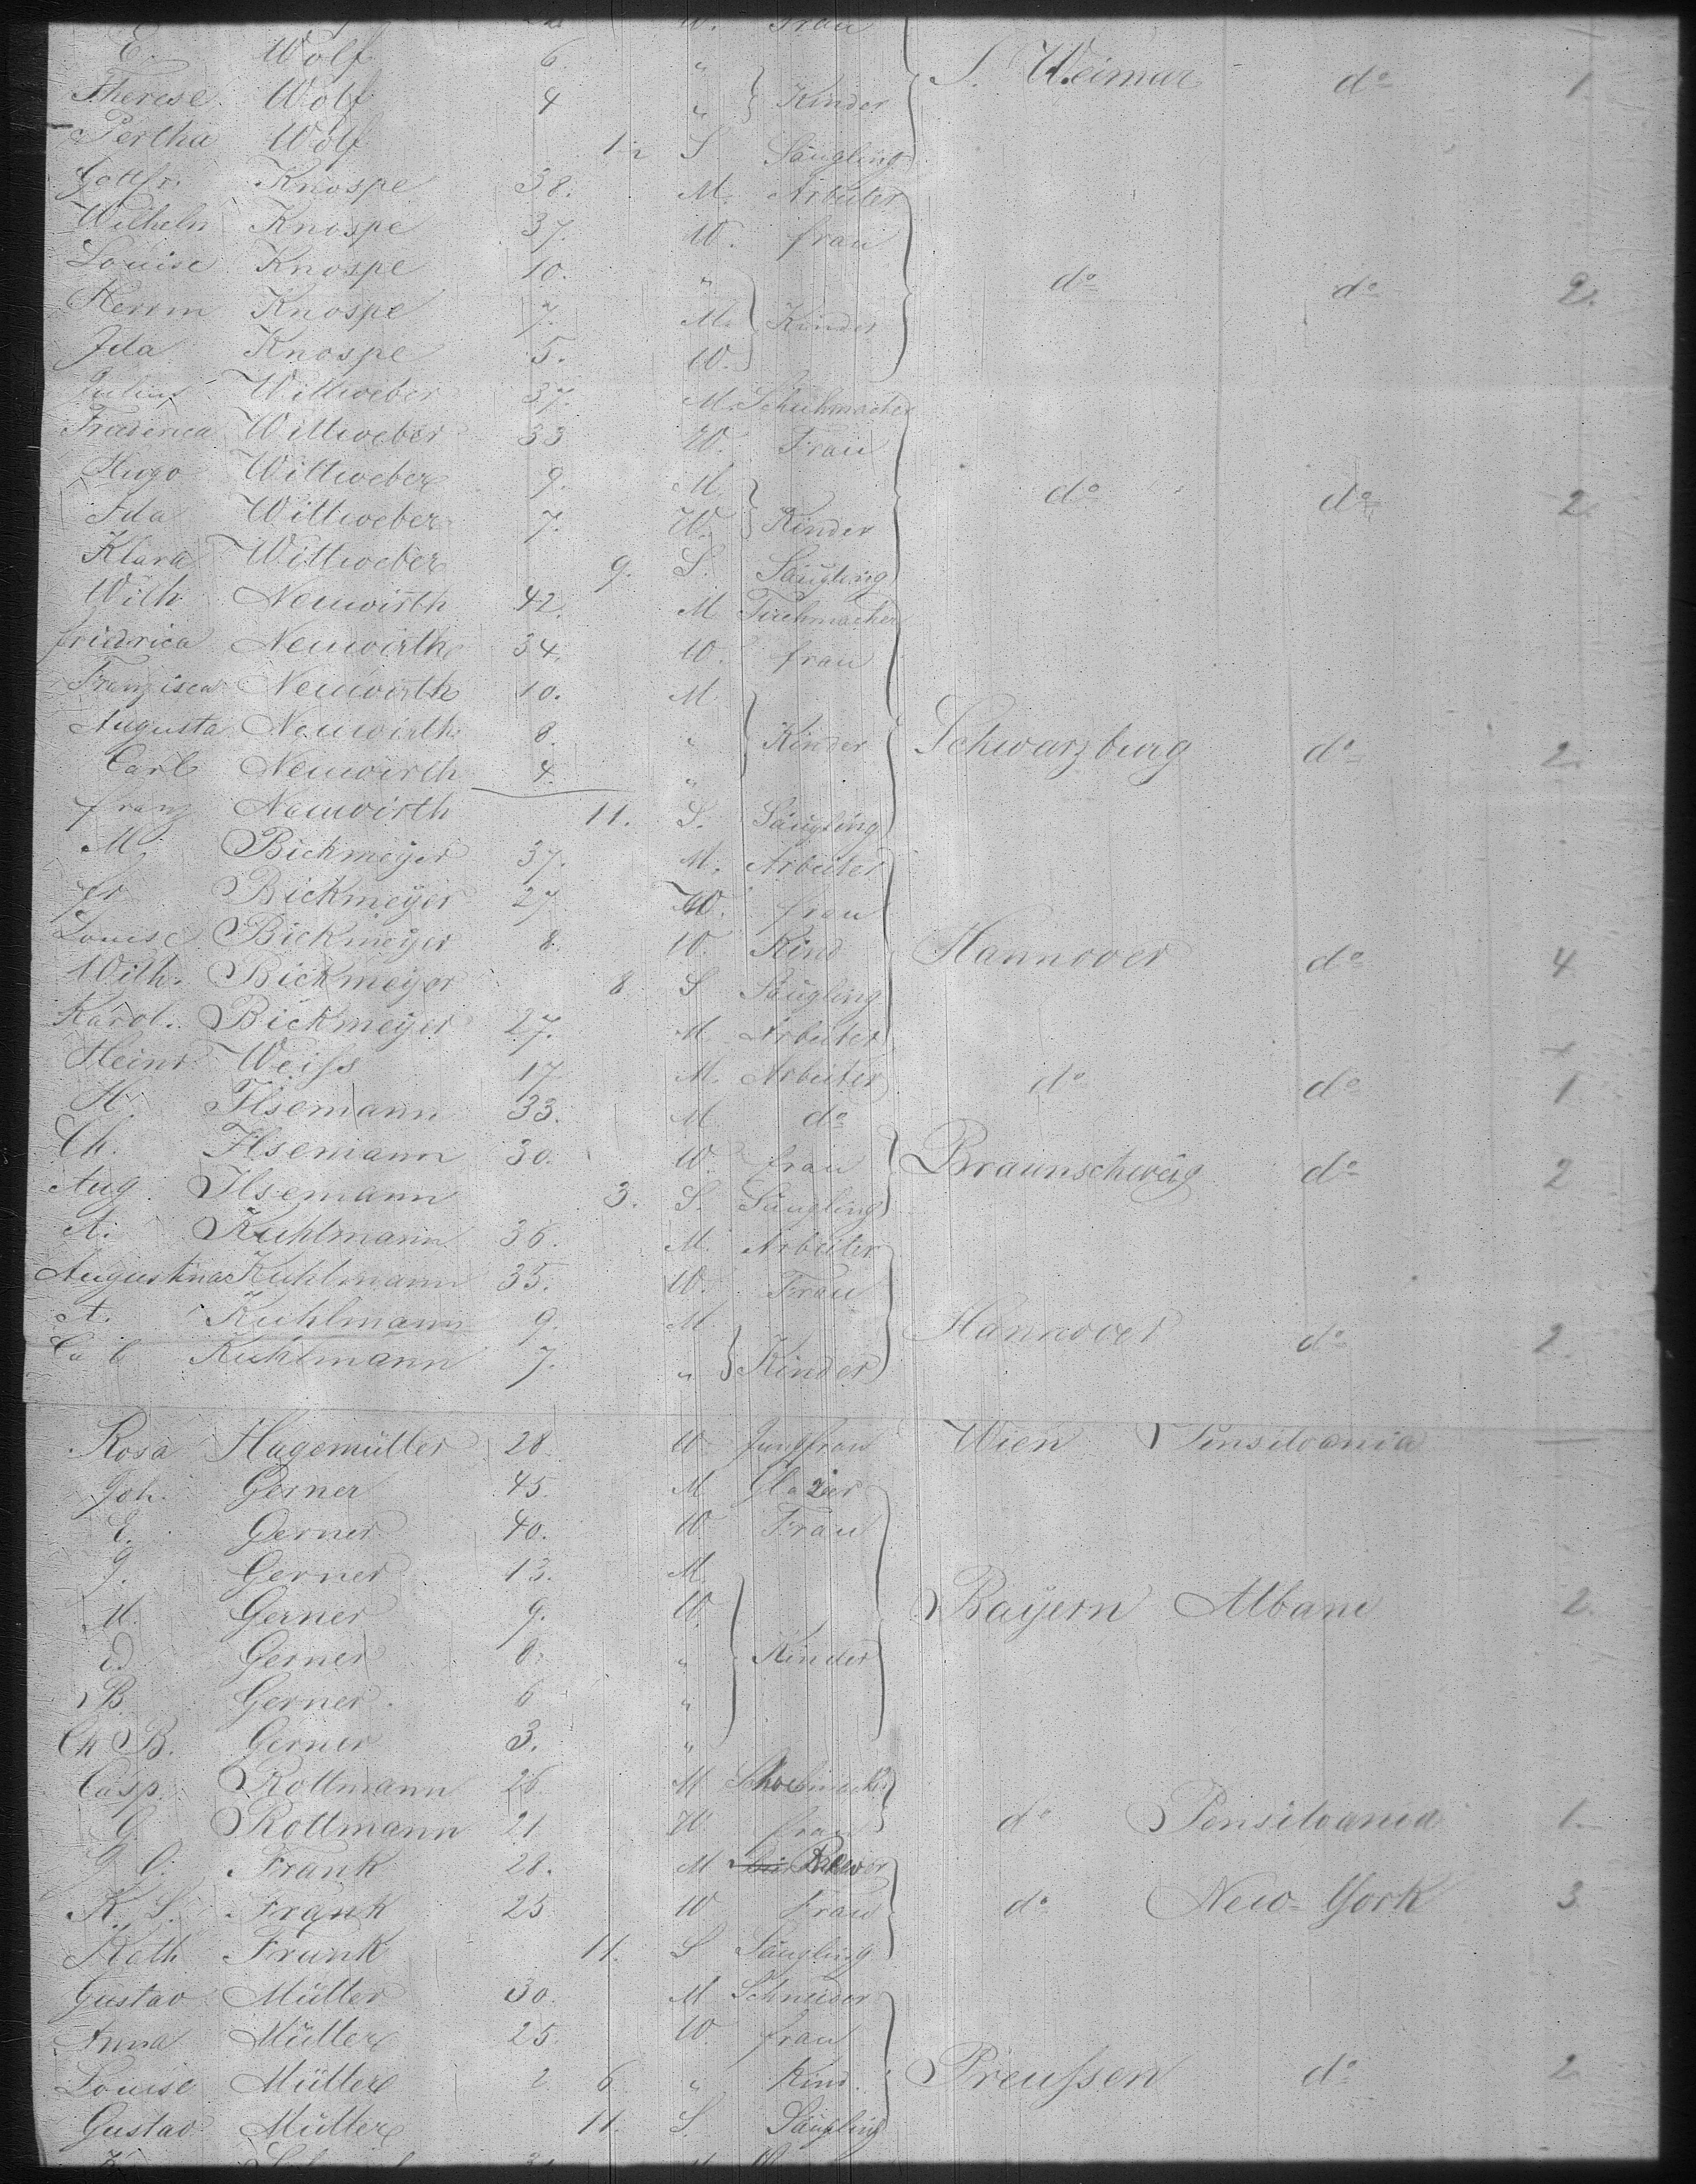 W. Frau
E. Wolf 6. " Kinder S. Weimar do 1
Therese Wolf 4 "
Pertha Wolf 1½ S Säugling
Gottfr. Knospe 38. M. Arbeiter
Wilhelm Knospe 37. W. frau
Louise Knospe 10. " Kinder do do 2.
Herrm Knospe 7. M.
Ida Knospe 5. W.
Julius Wittweber 37. M. Schuhmacher
Frederica Wittweber 33 W. Frau
Hugo Wittweber 9. M. Kinder do do 2.
Ida Wittweber 7. W.
Klara Wittweber 9. S. Säugling
Wilh Neuwirth 42. M Tuchmacher
friedrica Neuwirth 34. W. frau
Franzisca Neuwirth 10. M
Augusta Neuwirth 8. " Kinder Schwarzburg do 2.
Carl Neuwirth 4. "
franz Neuwirth 11. S. Säugling
M. Bickmeyer 37. M. Arbeiter
fr Bickmeyer 27 W. frau
Louise Bickmeyer 8. W. Kind Hannover do 4
Wilh. Bickmeyer 8 S Säugling
Karol. Bickmeyer 27. M Arbeiter
Heinr Weiss 17 M. Arbeiter do do 1
H. Ilsemann 33. M do
Ch. Ilsemann 30. W. frau Braunschweig do 2
Aug Ilsemann 3. S. Säugling
A. Kuhlmann 36. M. Arbeiter
Augustina Kuhlmann 35. W. Frau
A. Kuhlmann 9. M Kinder Hannover do 2.
Kuhlmann 7. "
Rosa Hagemüller 28. W. Jungfrau Wien Pensilvania —
Joh. Gerner 45. M Glazier
E. Gerner 40. W Frau
J. Gerner 13. M.
M. Gerner 9. W. Kinder Bayern Albane 2.
Ed Gerner 8. "
B. Gerner 6 "
Ch B. Gerner 3. "
Casp. Rottmann 26 M
G Rottmann 21 W frau do Pensilvania 1.
Frank 28. M Brewer
K. S. Frank 25 W Frau do New-York 3
Kath Frank 11. S Säugling
Gustav Müller 30. M Schneider
Anna Müller 25. W. frau
Louise Müller 2 6 " Kind. Preussen do 2
Gustav Müller 11. S. Säugling